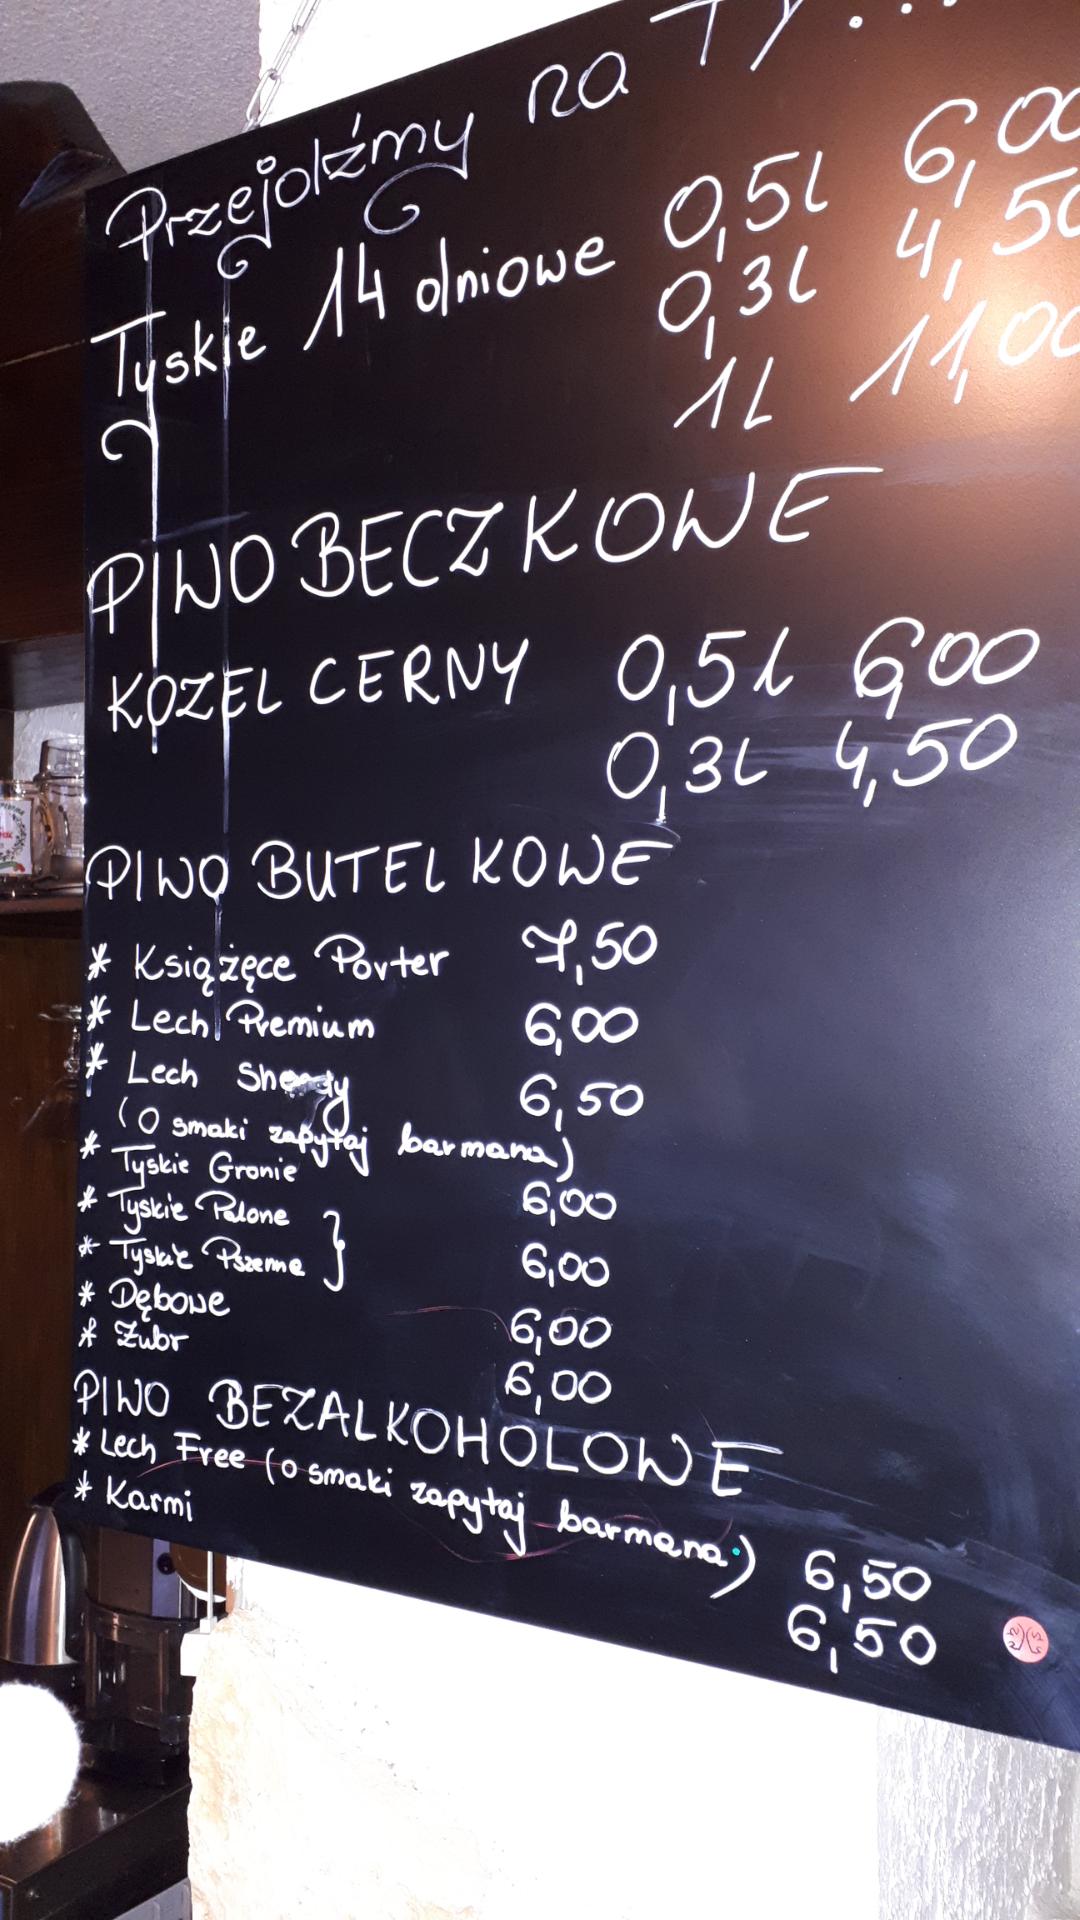 Przejdźmy na TY...
Tyskie 14 dniowe 0,5l 6,00
0,3l 4,50
1l 11,00
PIWO BECZKOWE
KOZEL CERNY 0,5l 6,00
0,3l 4,50
PIWO BUTELKOWE
* Książęce Porter 7,50
* Lech Premium 6,00
* Lech Shendy 6,50
(o smaki zapytaj barmana)
* Tyskie Gronie 6,00
* Tyskie Palone
* Tyskie Pszenne } 6,00
* Dębowe 6,00
* Żubr 6,00
PIWO BEZALKOHOLOWE
* Lech Free (o smaki zapytaj barmana.) 6,50
* Karmi 6,50